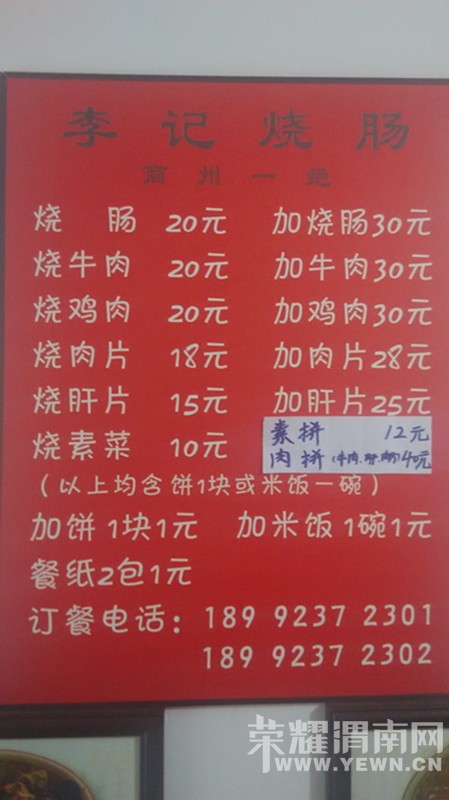 李记烧肠
商州一绝
烧 肠 20元 加烧肠30元
烧牛肉 20元 加牛肉30元
烧鸡肉 20元 加鸡肉30元
烧肉片 18元 加肉片28元
烧肝片 15元 加肝片25元
素拼 12元
烧素菜 10元
肉拼 40元
（以上均含饼1块或米饭一碗）
加饼1块1元 加米饭1碗1元
餐纸2包1元
订餐电话：18 9 9237 2301
18 9 9237 2302
荣耀渭南网
WWW.YEWN.CN